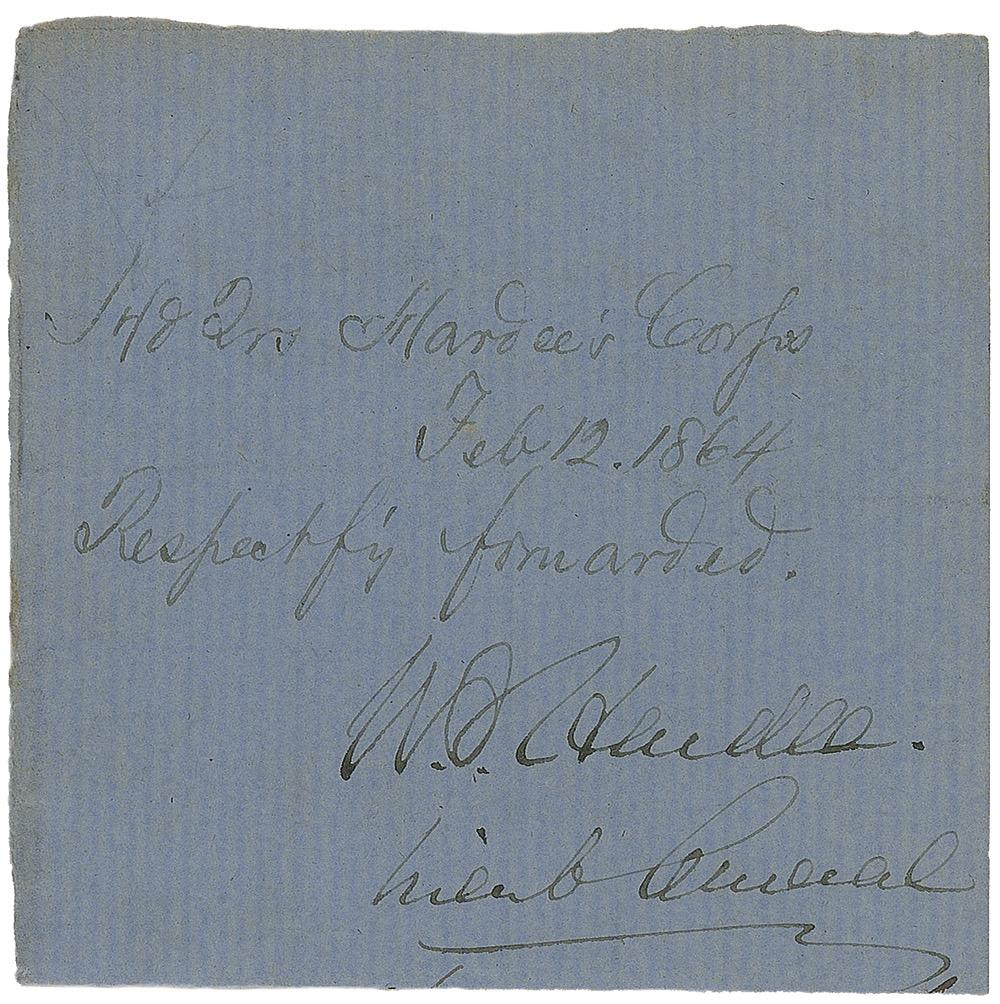 Hd Qrs Hardee's Corps
Feb 12. 1864
Respectfy forwarded.
W. J. Hardee.
Lieut General